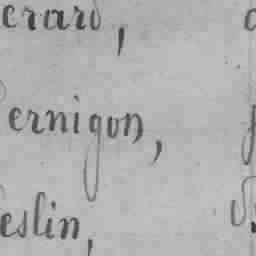 erard,
ernigon,
eslin,